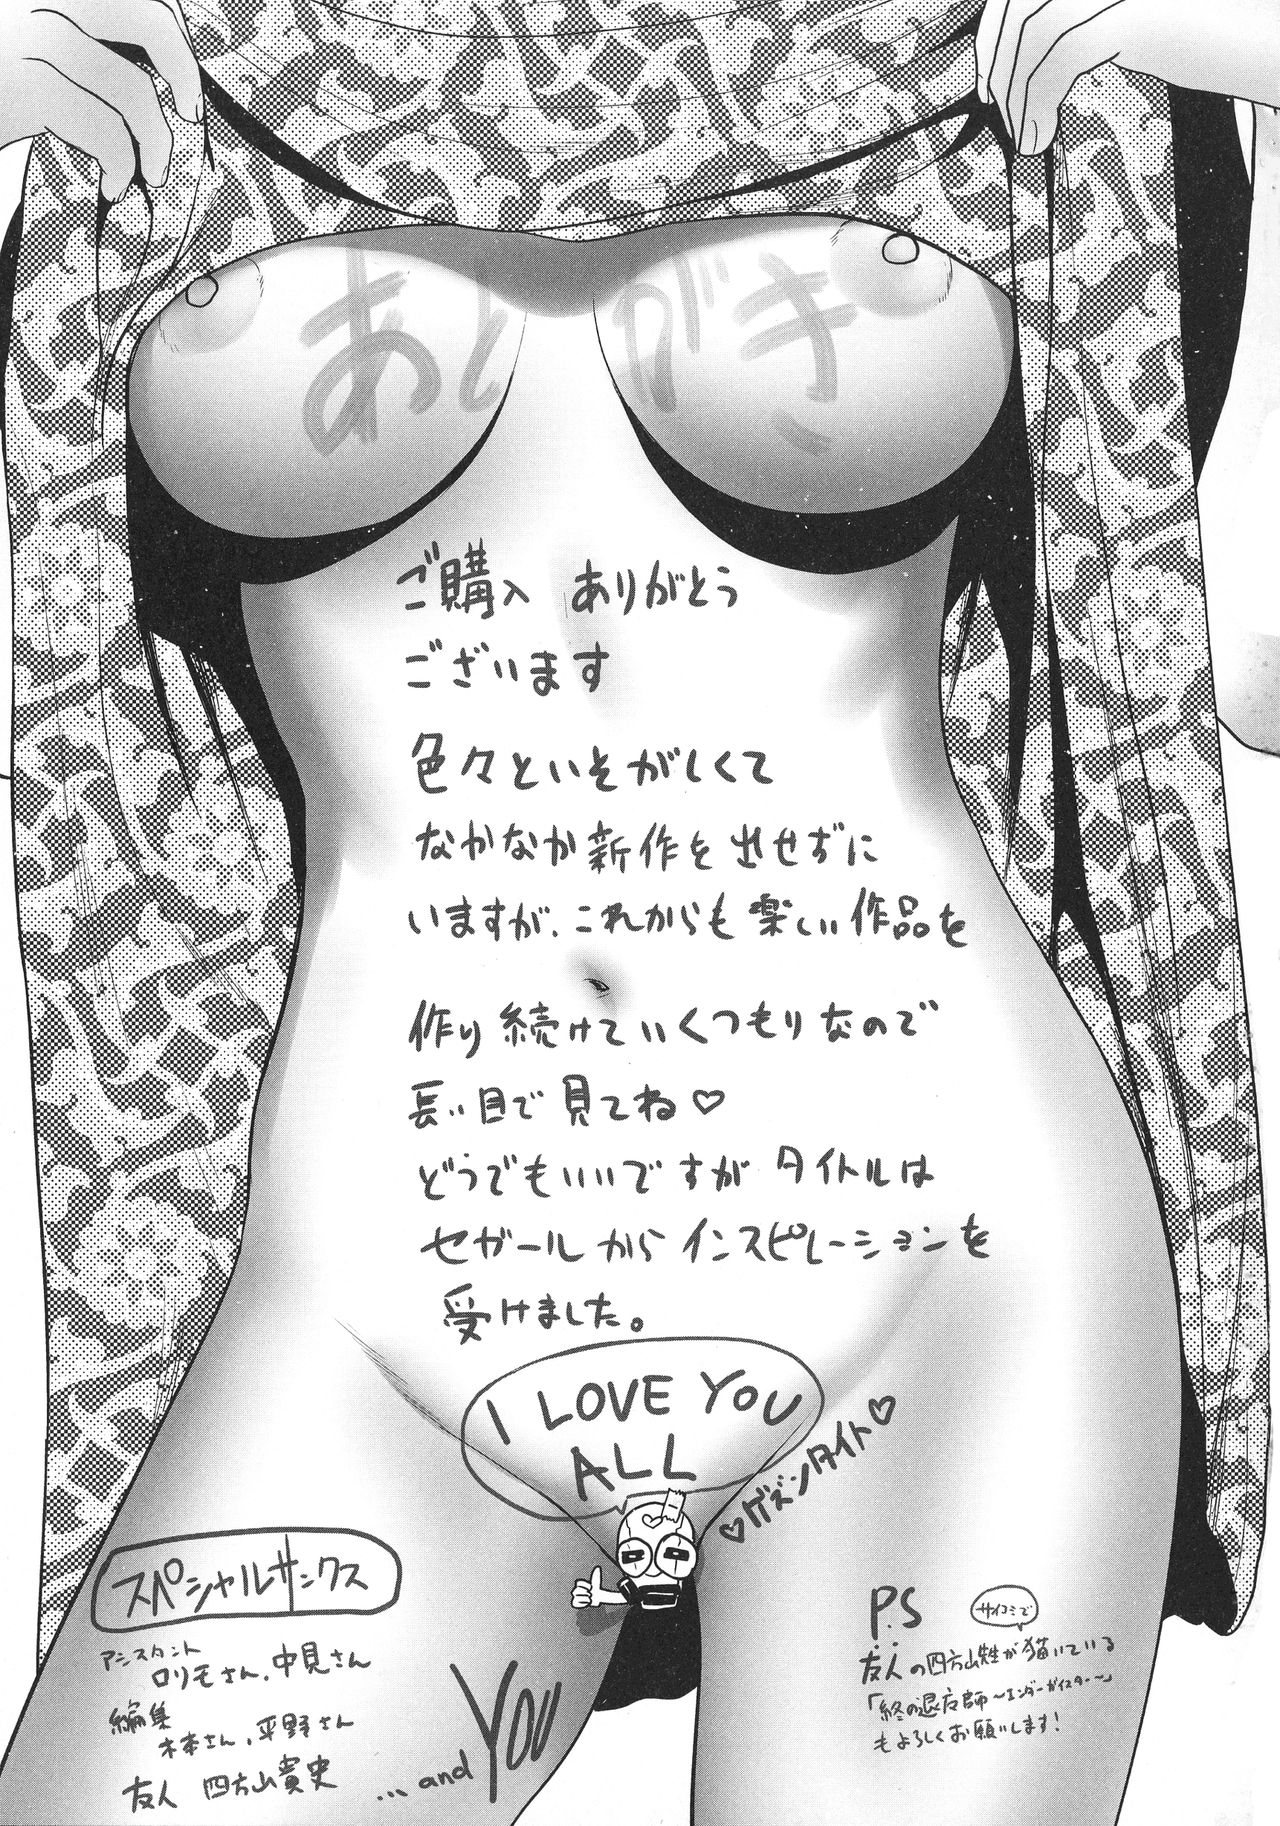 あとがき
ご購入 ありがとう
ございます
色々といそがしくて
なかなか新作を出せずに
いますが、これからも楽しい作品を
作り続けていくつもりなので
長い目で見てね♡
どうでもいいですが タイトルは
セガールからインスピレーションを
受けました。
I LOVE YOU
ALL
♡ゲズンタイト♡
スペシャルサンクス
アシスタント
ロリモさん、中見さん
編集
木本さん、平野さん
友人 四方山貴史
...and YOU
P.S
サイコミで
友人の四方山 が描いている
「終の退魔師～エンダーガイスター～」
もよろしくお願いします!